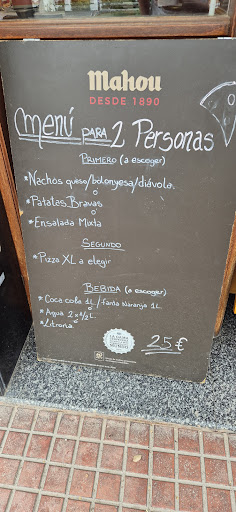 Mahou
DESDE 1890
Menú PARA 2 Personas
PRIMERO (a escoger)
*Nachos queso/bolonyesa/diávola.
*Patatas Bravas
*Ensalada Mixta
SEGUNDO
*Pizza XL a elegir
BEBIDA (a escoger)
*Coca cola 1L/fanta Naranja 1L
*Agua 2x1/2L
*Litrona
25€